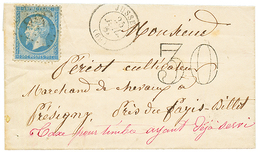 JUSSEY
Monsieur
30
Périot cultivateur
Marchand de chevaux à
Présigny, Près du Fayis-Billot
Taxe pour timbre ayant déjà servi